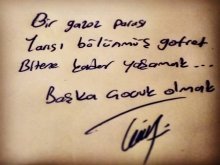 Bir gazoz parası
Yarısı bölünmüş gofret
Bitene kadar yaşamak...
Başka çocuk olmak